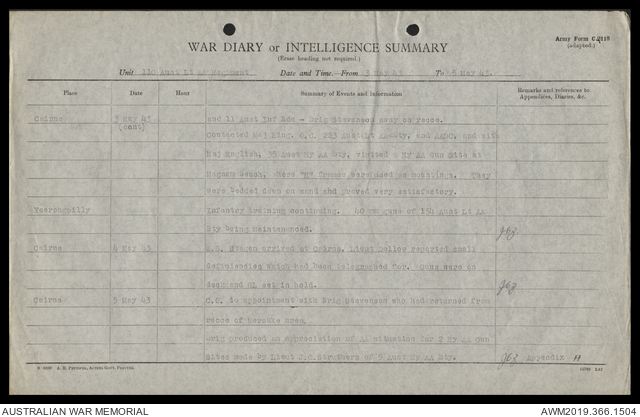 Army Form C.2118
(adapted.)
WAR DIARY or INTELLIGENCE SUMMARY
(Erase heading not required.)
Unit 110 Aust Lt AA Regiment Date and Time.—From 3 May 43 To 5 May 43.
Place Date Hour Summary of Events and Information Remarks and references to Appendices, Diaries, &c.
Cairns 3 May 43 and 11 Aust Inf Bde - Brig Stevenson away on recce.
(cont) Contacted Maj King, O.C. Aust Lt AA Bty, and AADC, and with
Maj English, 35 Aust Hy AA Bty, visited a Hy AA Gun Site at
Beach, where were used as They
were bedded down on sand and proved very satisfactory.
Yeerongpilly Infantry training continuing. 40 mm guns of 154 Aust Lt AA
Bty being maintenanced.
Cairns 4 May 43 arrived at Cairns. Lieut reported small
deficiencies which had been telegraphed for. Guns were in
SL set in hold.
Cairns 5 May 43 C.O. in appointment with Brig Stevenson who had returned from
recce of area.
Brig produced an appreciation of AA situation for 2 Hy AA Gun
Sites made by Lieut J.C. Struthers of Aust Hy AA Bty. Appendix
A. H. Pettifer, Acting Govt. Printer.
AUSTRALIAN WAR MEMORIAL
AWM2019.366.1504